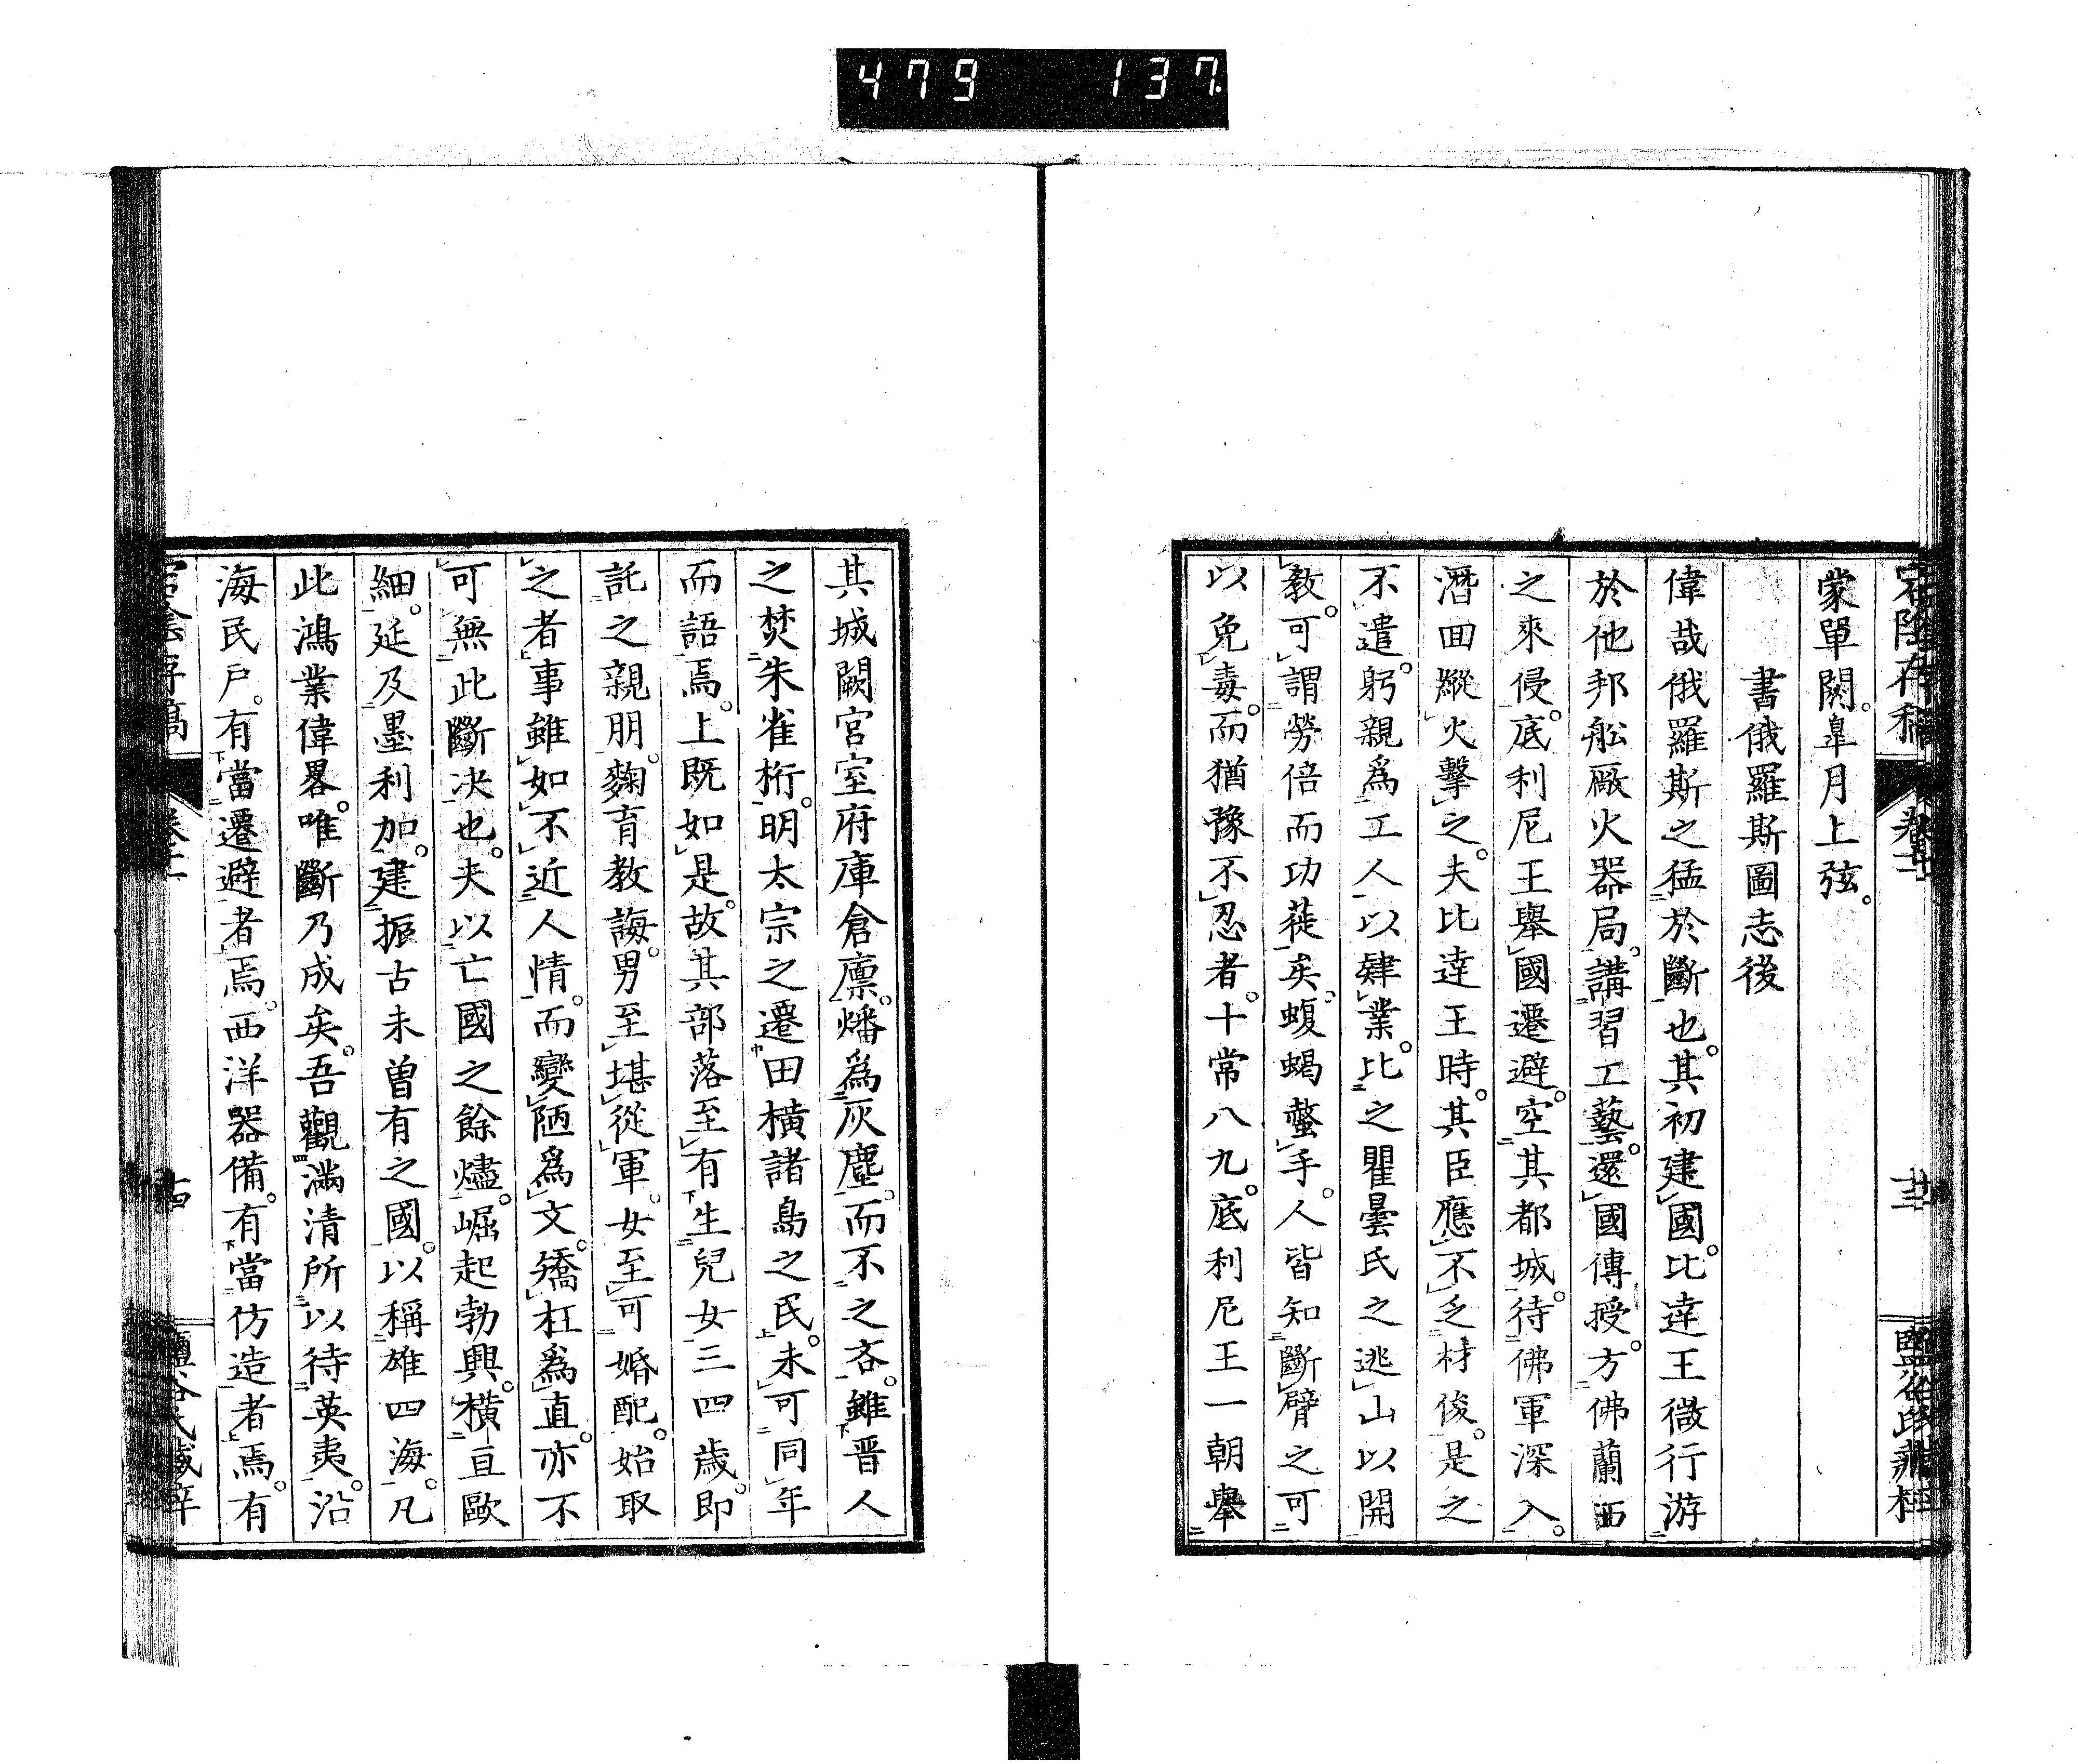 479 137.
蒙單閼。皐月上弦。
書俄羅斯圖志後
偉哉俄羅斯之猛於斷也。其初建國。比達王微行游
於他邦舩厰火器局。講習工藝。還國傳授。方佛蘭西
之來侵。底利尼王舉國遷避。空其都城。待佛軍深入。
潛囬縱火擊之。夫比達王時。其臣應不乏材俊。是之
不遣。躬親爲工人以肄業。比之瞿曇氏之逃山以開
教。可謂勞倍而功蓰矣。蝮蝎螫手。人皆知斷臂之可
以免毒。而猶豫不忍者。十常八九。底利尼王一朝舉
其城闕宮室府庫倉廪。燔爲灰塵。而不之吝。雖晋人
之焚朱雀桁。明太宗之遷田橫諸島之民。未可同年
而語焉。上既如是。故其部落至有生兒女三四歲。即
託之親朋。鞠育教誨。男至堪從軍。女至可婚配。始取
之者。事雖如不近人情。而變陋爲文。矯枉爲直。亦不
可無此斷决也。夫以亡國之餘燼。崛起勃興。橫亘歐
細。延及墨利加。建振古未曾有之國。以稱雄四海。凡
此鴻業偉畧。唯斷乃成矣。吾觀滿清所以待英夷。沿
海民戶。有當遷避者焉。西洋器備。有當仿造者焉。有
宕陰存稿 卷十